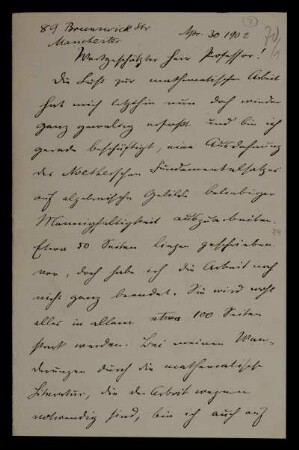 89 Brunswick Str
Manchester
Apr. 30 1902
Wertgeschätzter Herr Professor!
Die Lust zur mathematischen Arbeit
hat mich letzthin nun doch wieder
ganz gewaltig erfasst und bin ich
gerade beschäftigt, eine Ausdehnung
des Noetherschen Fundamentalsatzes
auf algebraische Gebilde beliebiger
Mannigfaltigkeit auszuarbeiten.
Etwa 80 Seiten liegen geschrieben
vor, doch habe ich die Arbeit noch
nicht ganz beendet. Sie wird wohl
alles in allem etwa 100 Seiten
stark werden. Bei meinen Wan-
derungen durch die mathematische
Literatur, die der Arbeit wegen
notwendig sind, bin ich auch auf